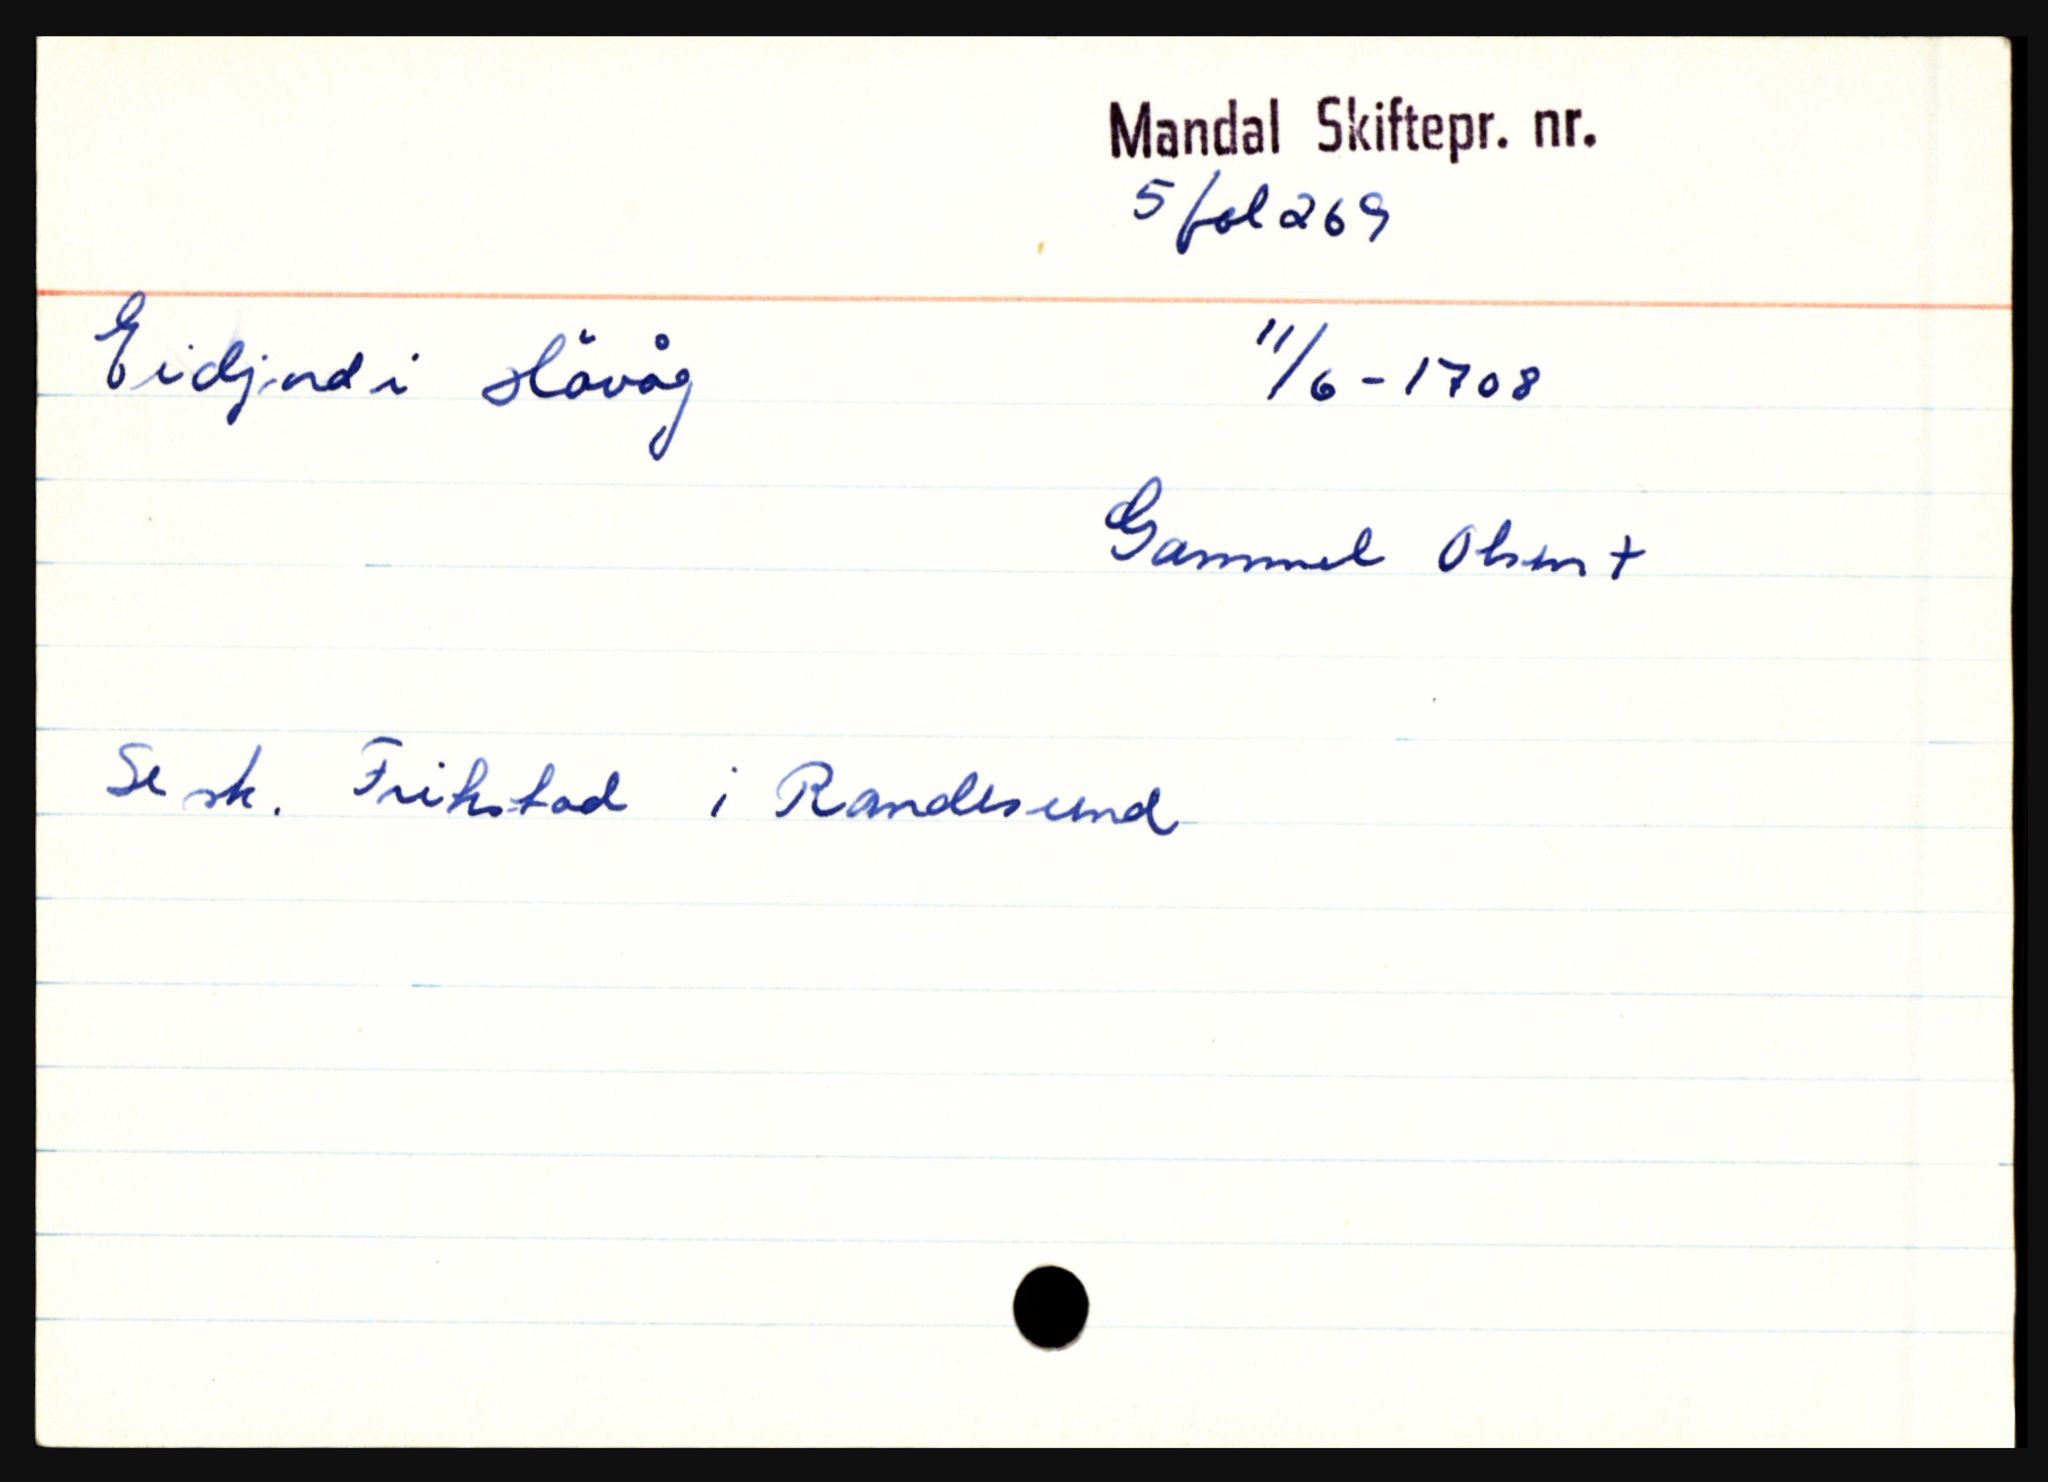 Mandal Skiftepr. nr.
5 fol 269
Eidjord i Hövåg 11/6 - 1708
Gammel Olsen +
Se sk. Frikstad i Randesund